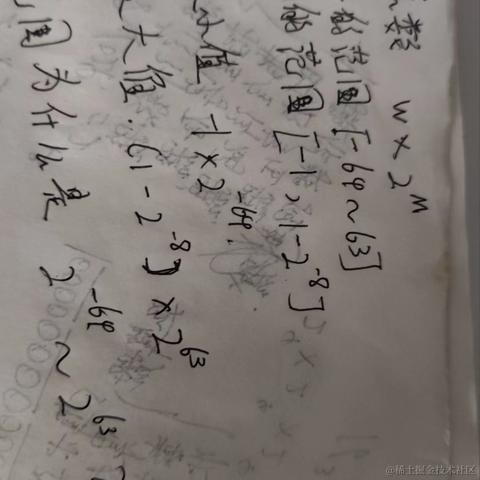 数 w×2^M
的范围[-64~63]
的范围[-1,1-2^-8]
小值 -1×2^-64.
大值.(1-2^-8)×2^63
围为什么是 2^-64~2^63
@稀土掘金技术社区